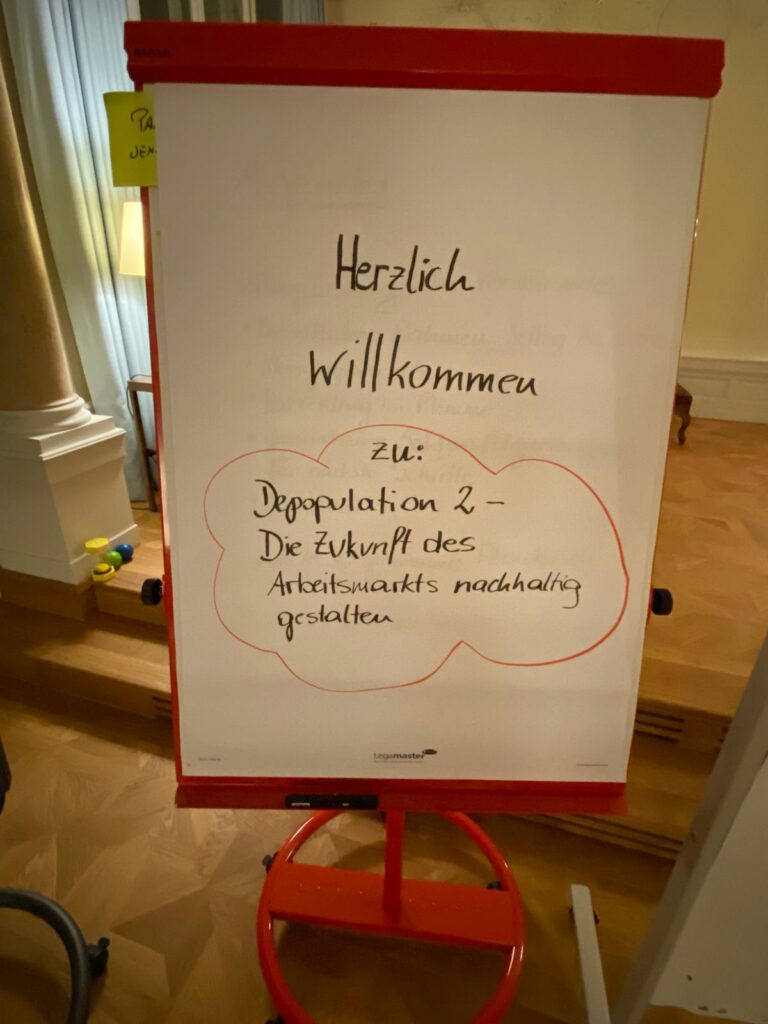 Herzlich
Willkommen
zu:
Depopulation 2 –
Die Zukunft des
Arbeitsmarkts nachhaltig
gestalten
Legamaster